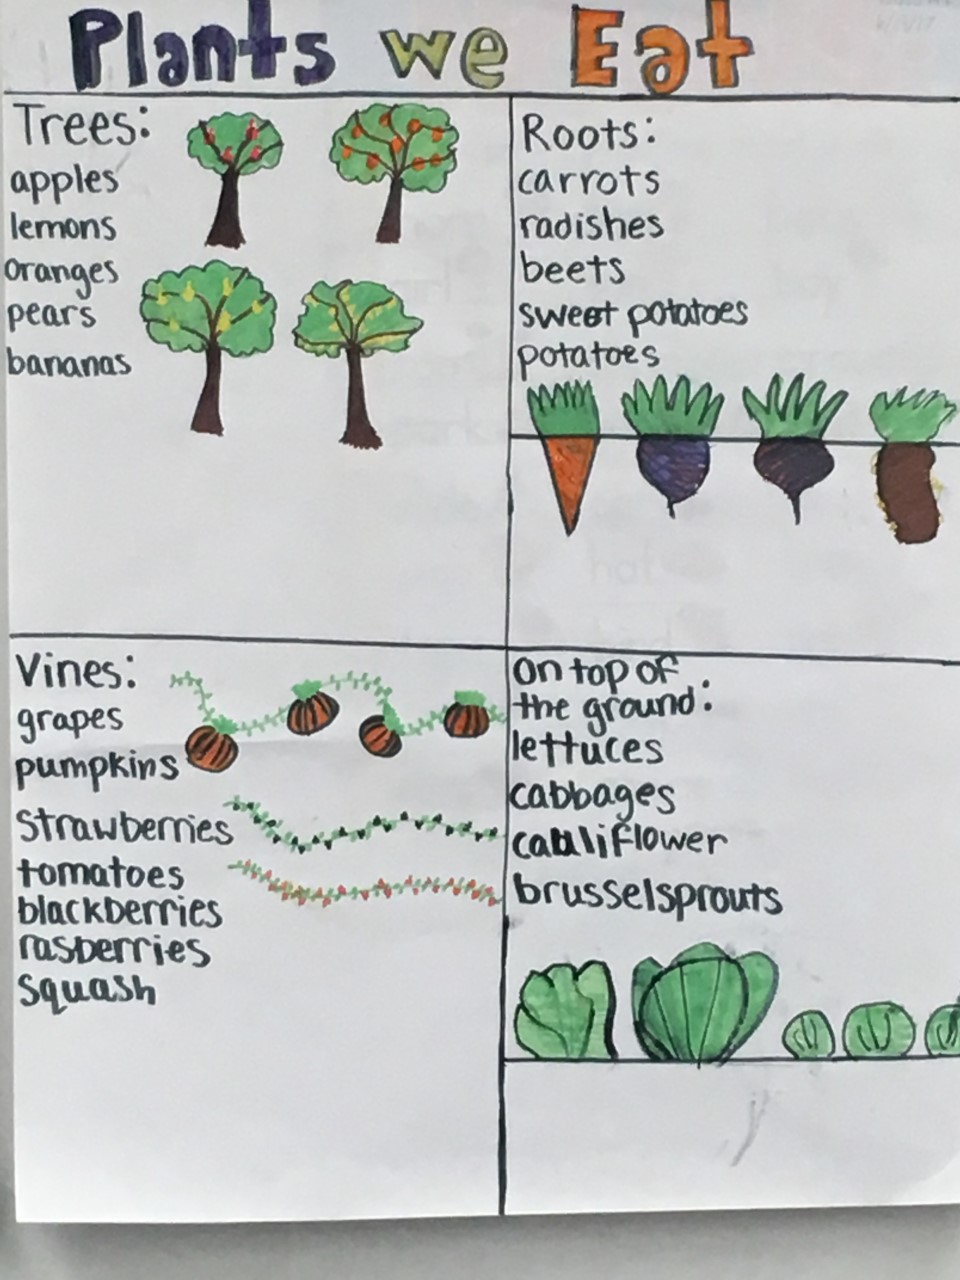 Plants we Eat
Trees:
apples
lemons
oranges
pears
bananas
Roots:
carrots
radishes
beets
sweet potatoes
potatoes
Vines:
grapes
pumpkins
strawberries
tomatoes
blackberries
rasberries
squash
on top of
the ground:
lettuces
cabbages
cauliflower
brusselsprouts